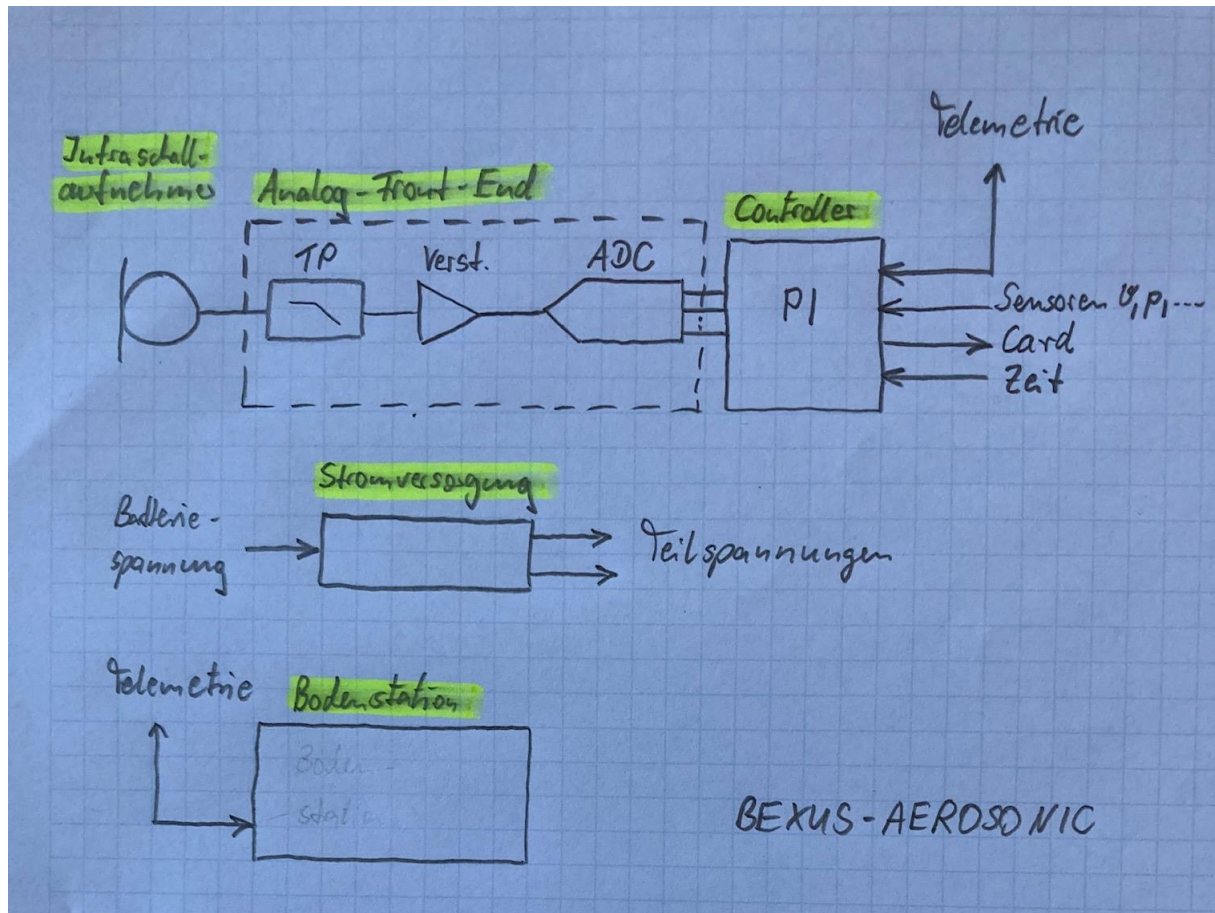 Telemetrie
Infraschall-
aufnehmer
Analog-Front-End
Controller
TP
Verst.
ADC
PI
Sensoren ϑ, p, ...
Card
Zeit
Stromversorgung
Batterie-
spannung
Teilspannungen
Telemetrie
Bodenstation
Boden-
station
BEXUS-AEROSONIC